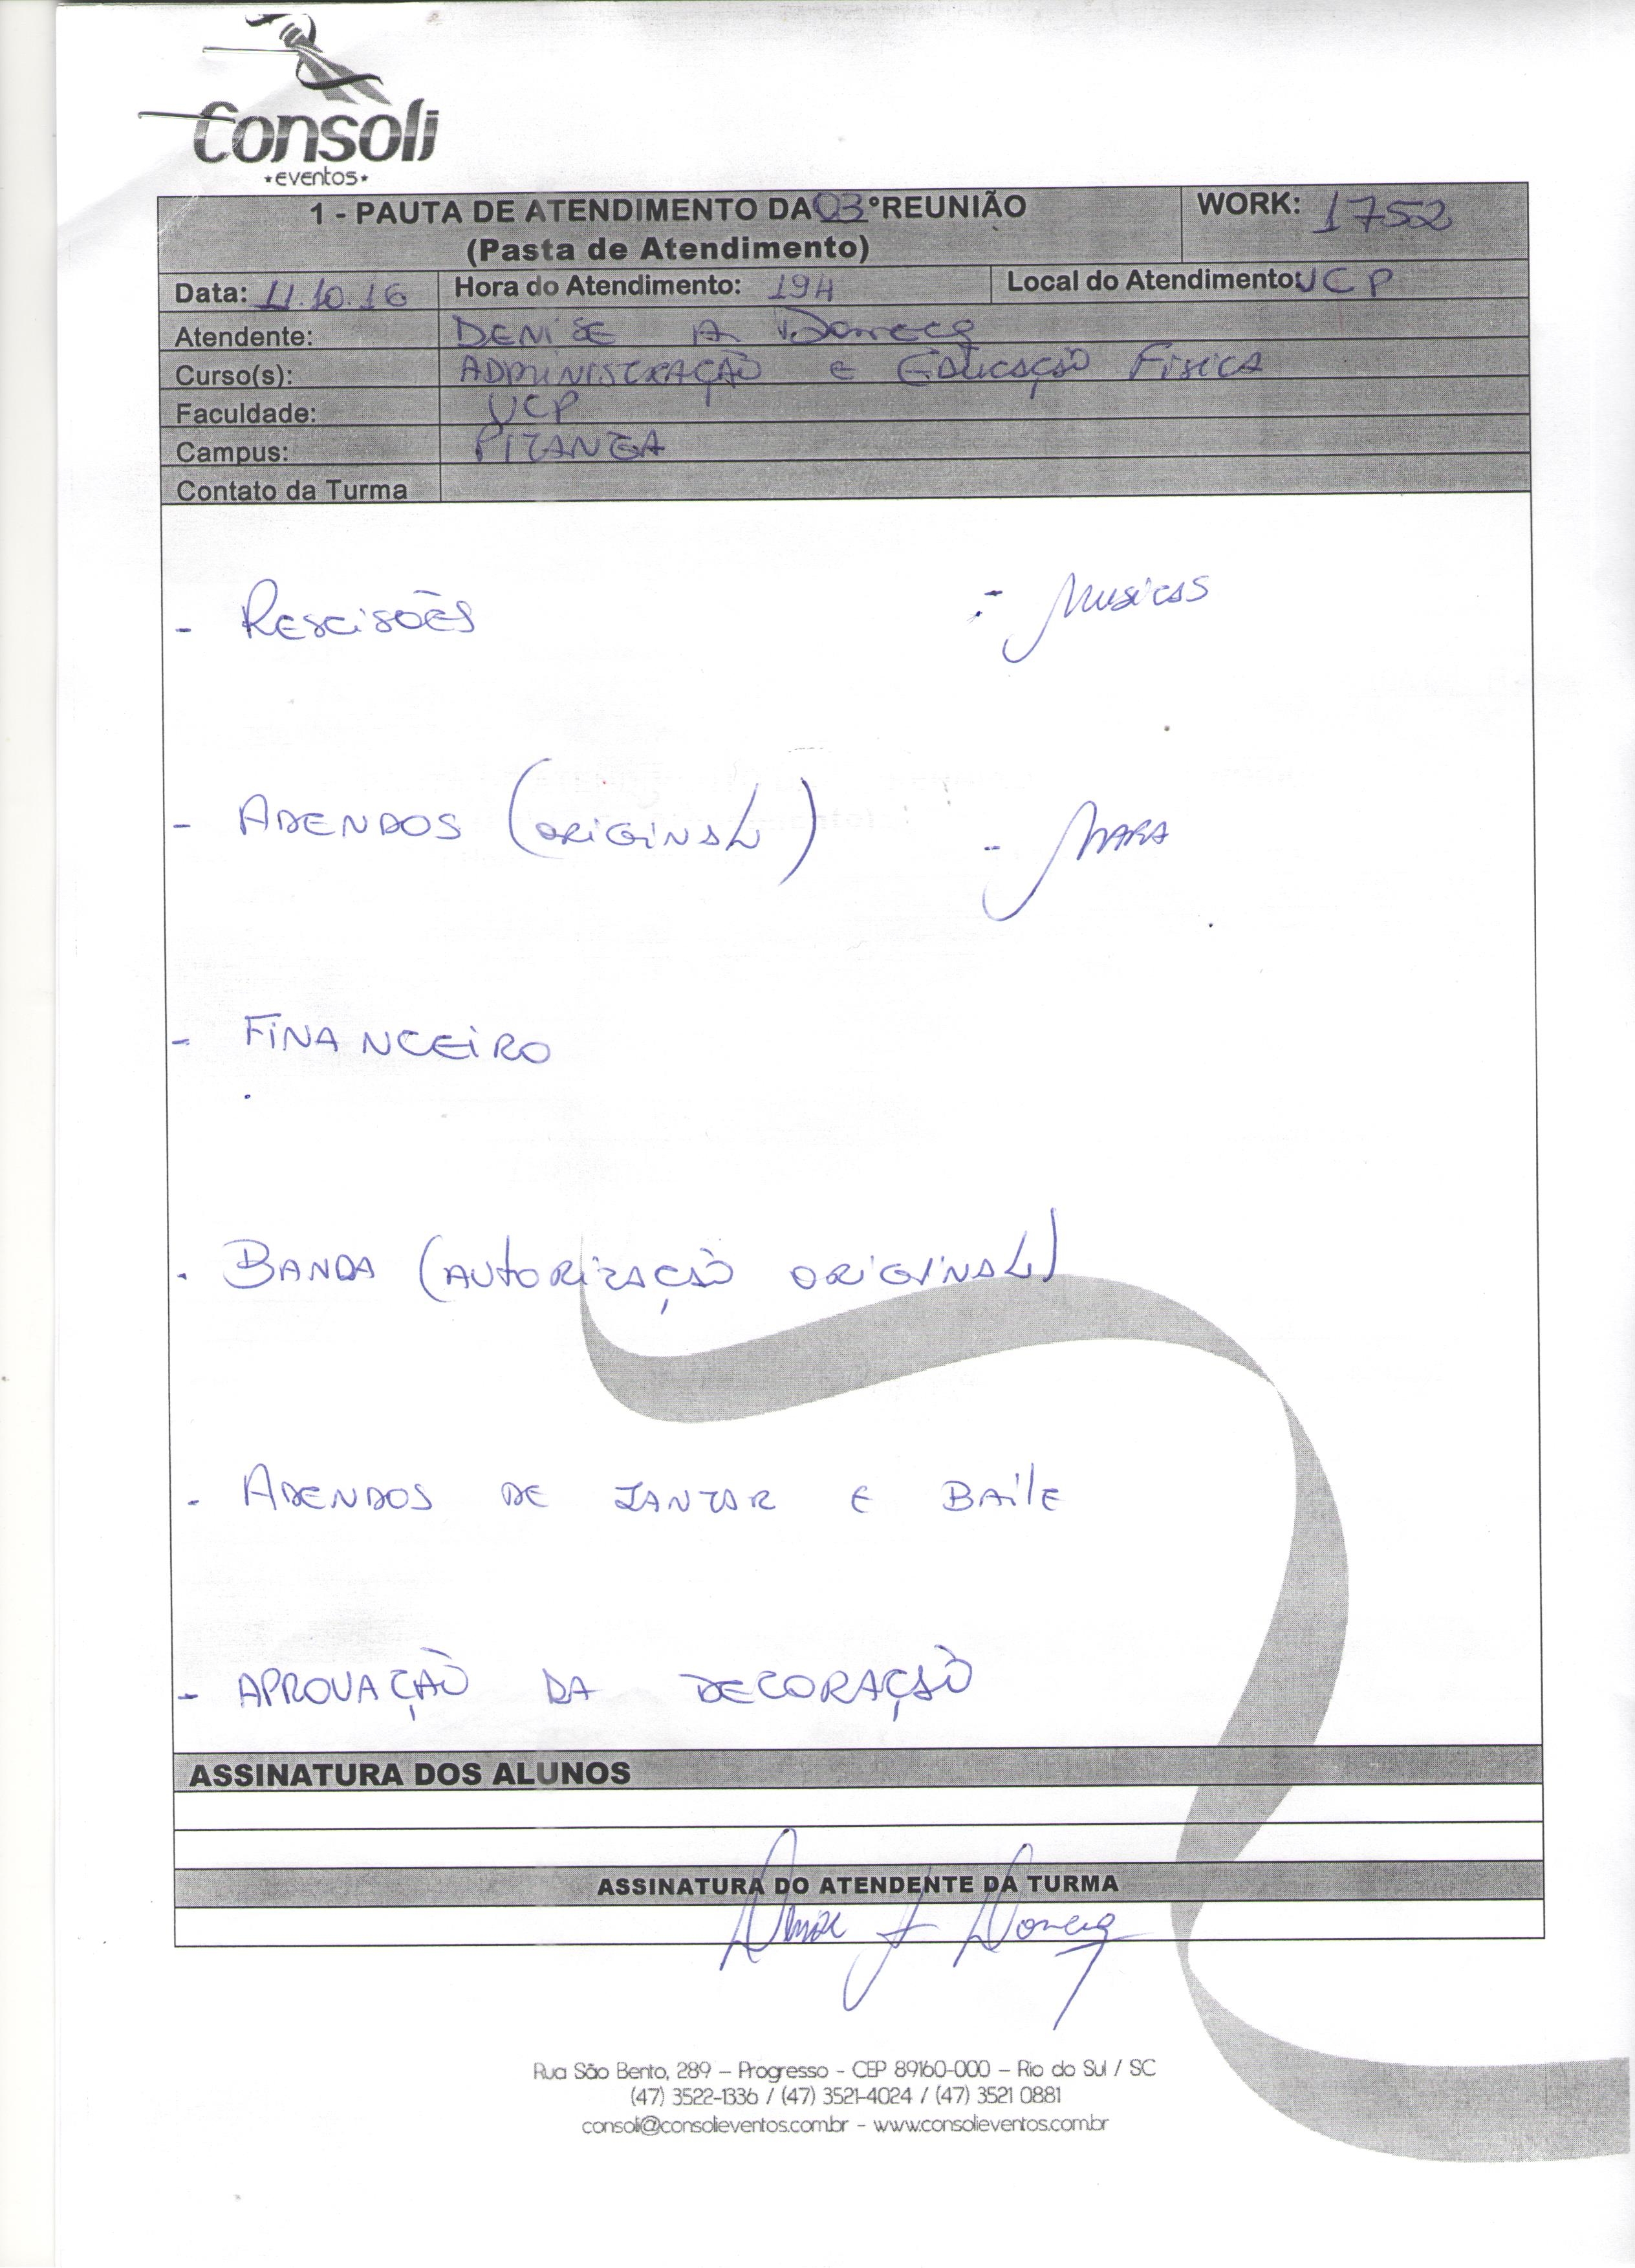 Consoli
*eventos*
1 - PAUTA DE ATENDIMENTO DA 03°REUNIÃO
(Pasta de Atendimento)
WORK: 1752
Data: 11.10.16 Hora do Atendimento: 19H Local do Atendimento: UCP
Atendente: DENISE A
Curso(s): ADMINISTRAÇÃO e EDUCAÇÃO FÍSICA
Faculdade: UCP
Campus: PITANGA
Contato da Turma
- RESCISÕES
- Musicas
- ADENDOS (ORIGINAL)
- MARA
- FINANCEIRO
- BANDA (AUTORIZAÇÃO ORIGINAL)
- ADENDOS DE JANTAR E BAILE
- APROVAÇÃO DA DECORAÇÃO
ASSINATURA DOS ALUNOS
ASSINATURA DO ATENDENTE DA TURMA
Rua São Bento, 289 – Progresso - CEP 89160-000 – Rio do Sul / SC
(47) 3522-1336 / (47) 3521-4024 / (47) 3521 0881
consoli@consolieventos.com.br – www.consolieventos.com.br